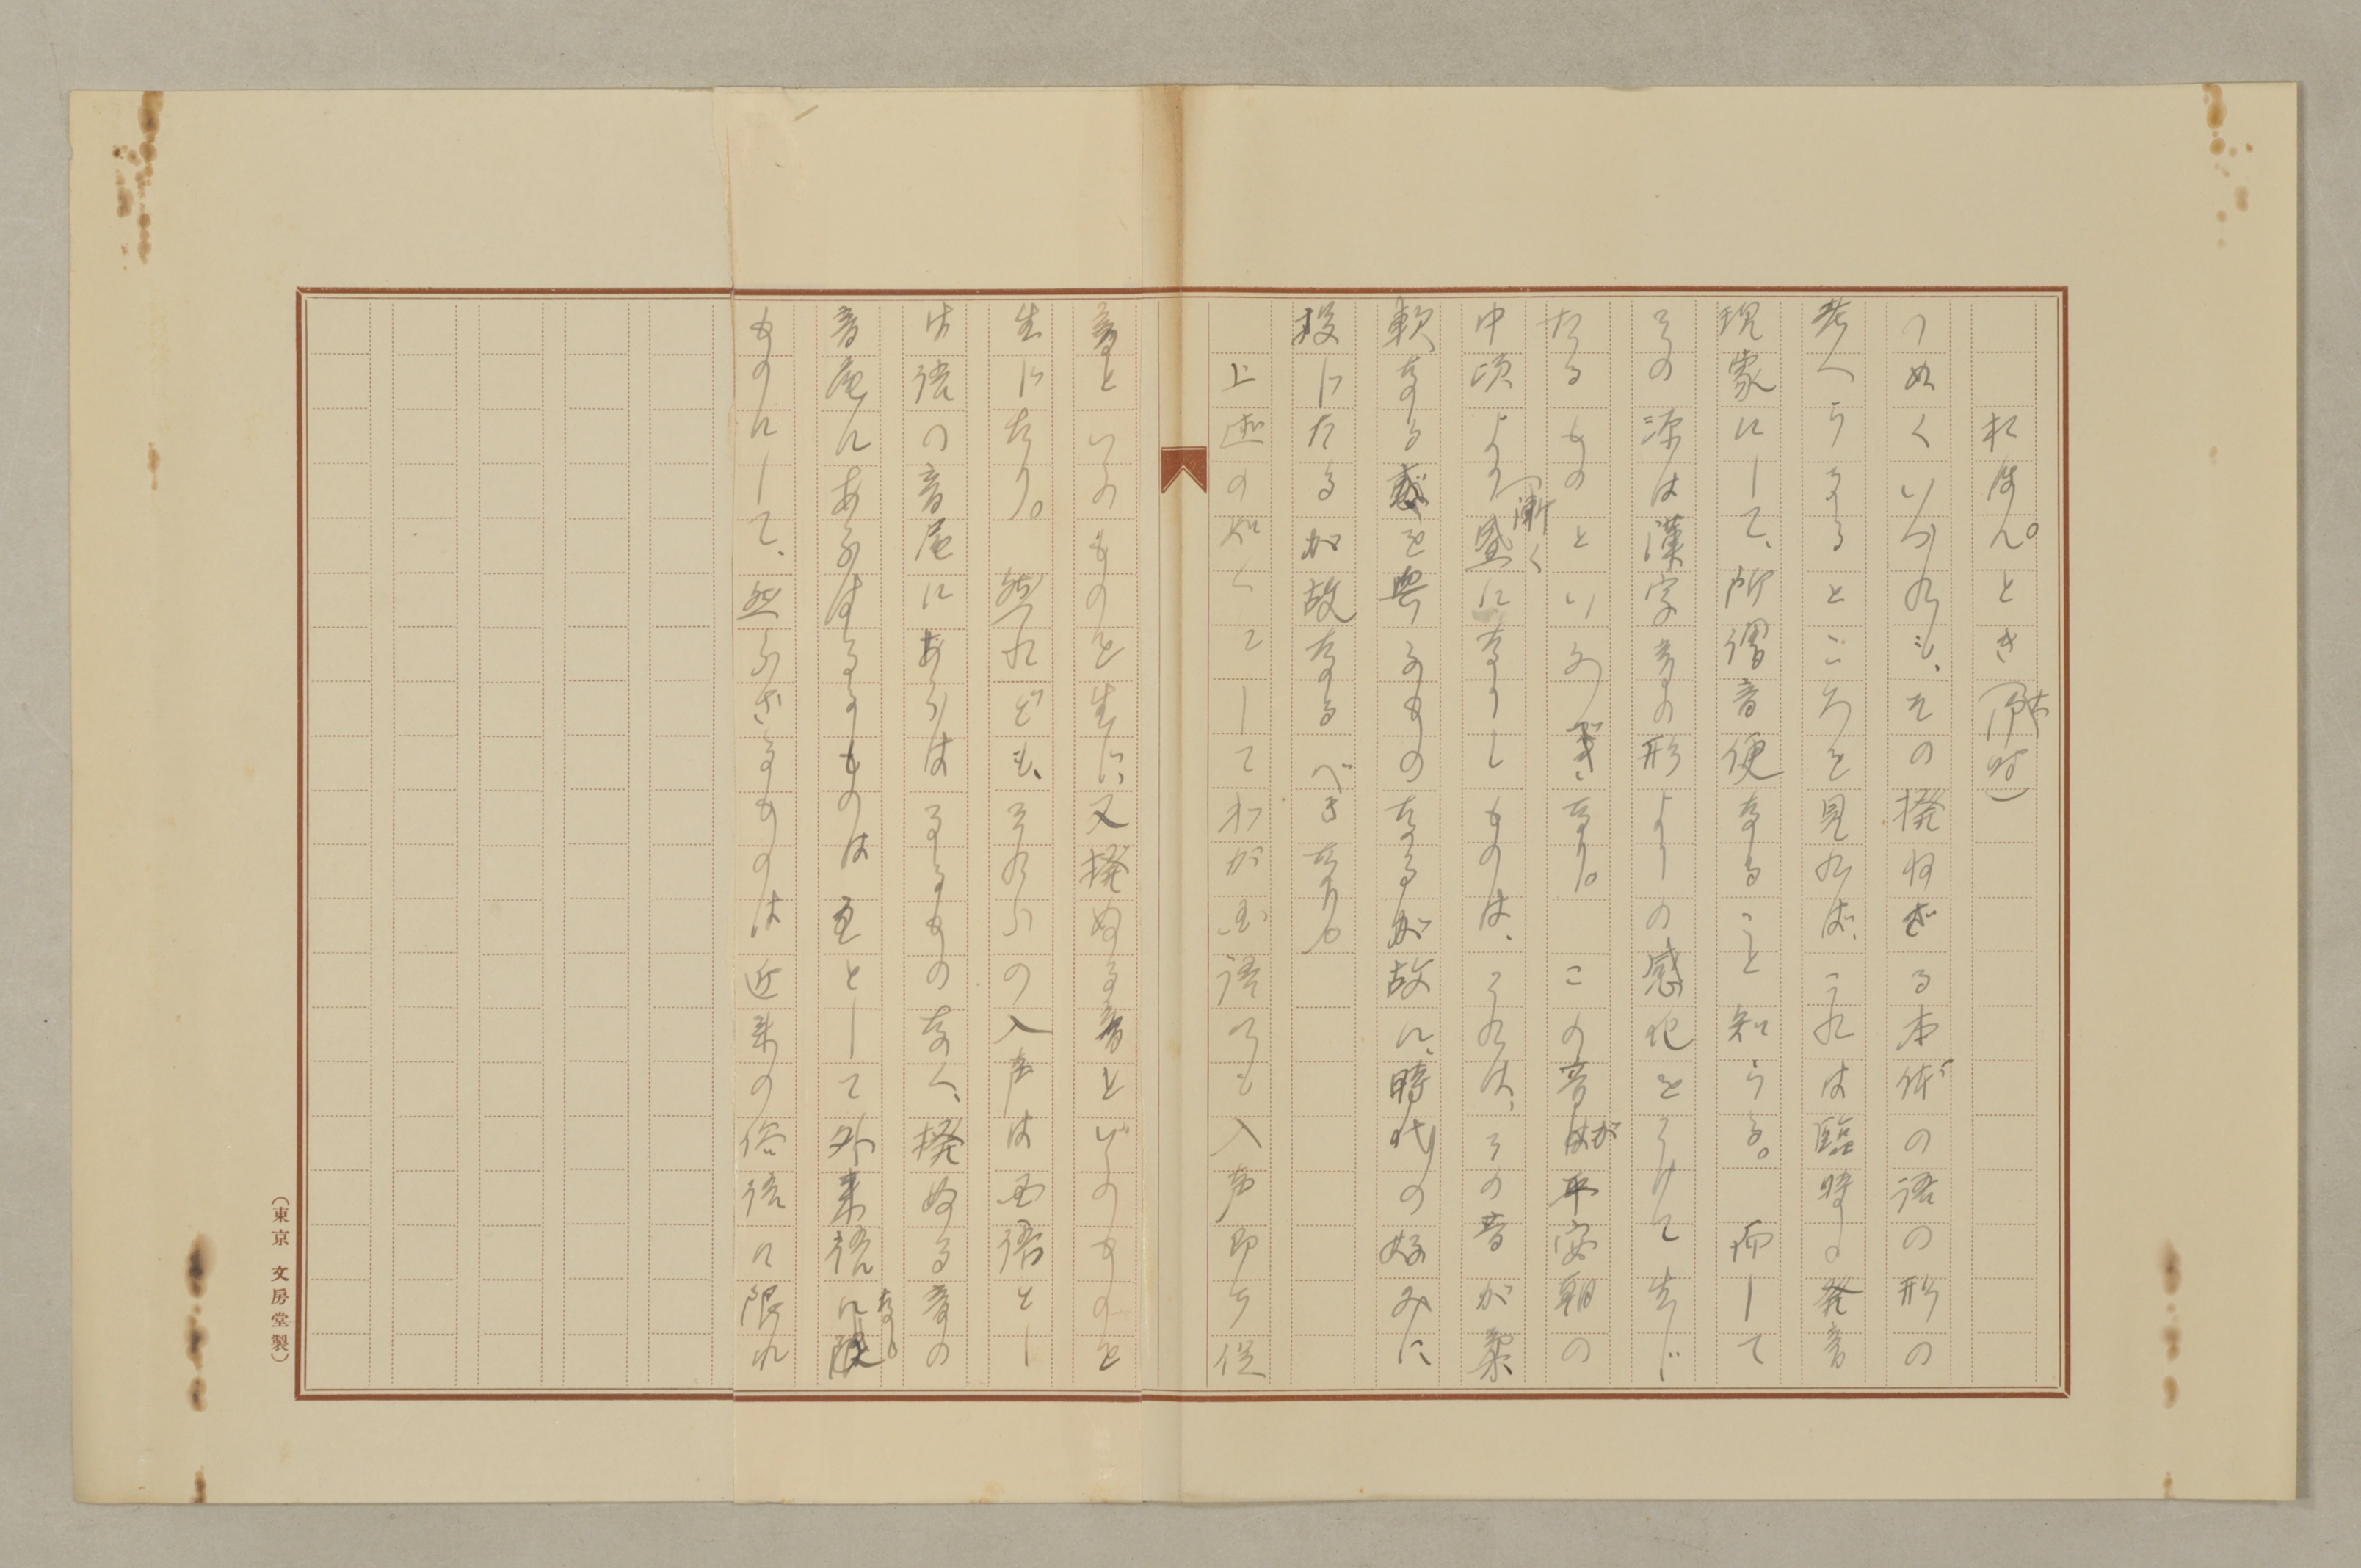 おほん。とき（御時）
つめくいづれも、その撥ねざる本体の語の形の
考へうるところを見れば、これは臨時の発音
現象にして、所謂音便なること知らる。而して
その源は漢字音の形よりの感化をうけて生じ
たるものといふべきなり。この音が平安朝の
中頃より漸く盛になりしものは、それは、その音が柔
軟なる感を与ふるものなるが故に、時代の好みに
投じたるが故なるべきなり。
上述の如くにしてわが国語にも入声即ち促
音といふものを生じ、又撥ぬる音といふものを
生じたり。然れども、それらの入声は国語とし
ては語の音尾にあらはるるものなく、撥ぬる音の
音尾にあらはるるものは主として外来語なる
ものにして、然らざるものは近来の俗語に限れ
（東京 文房堂製）